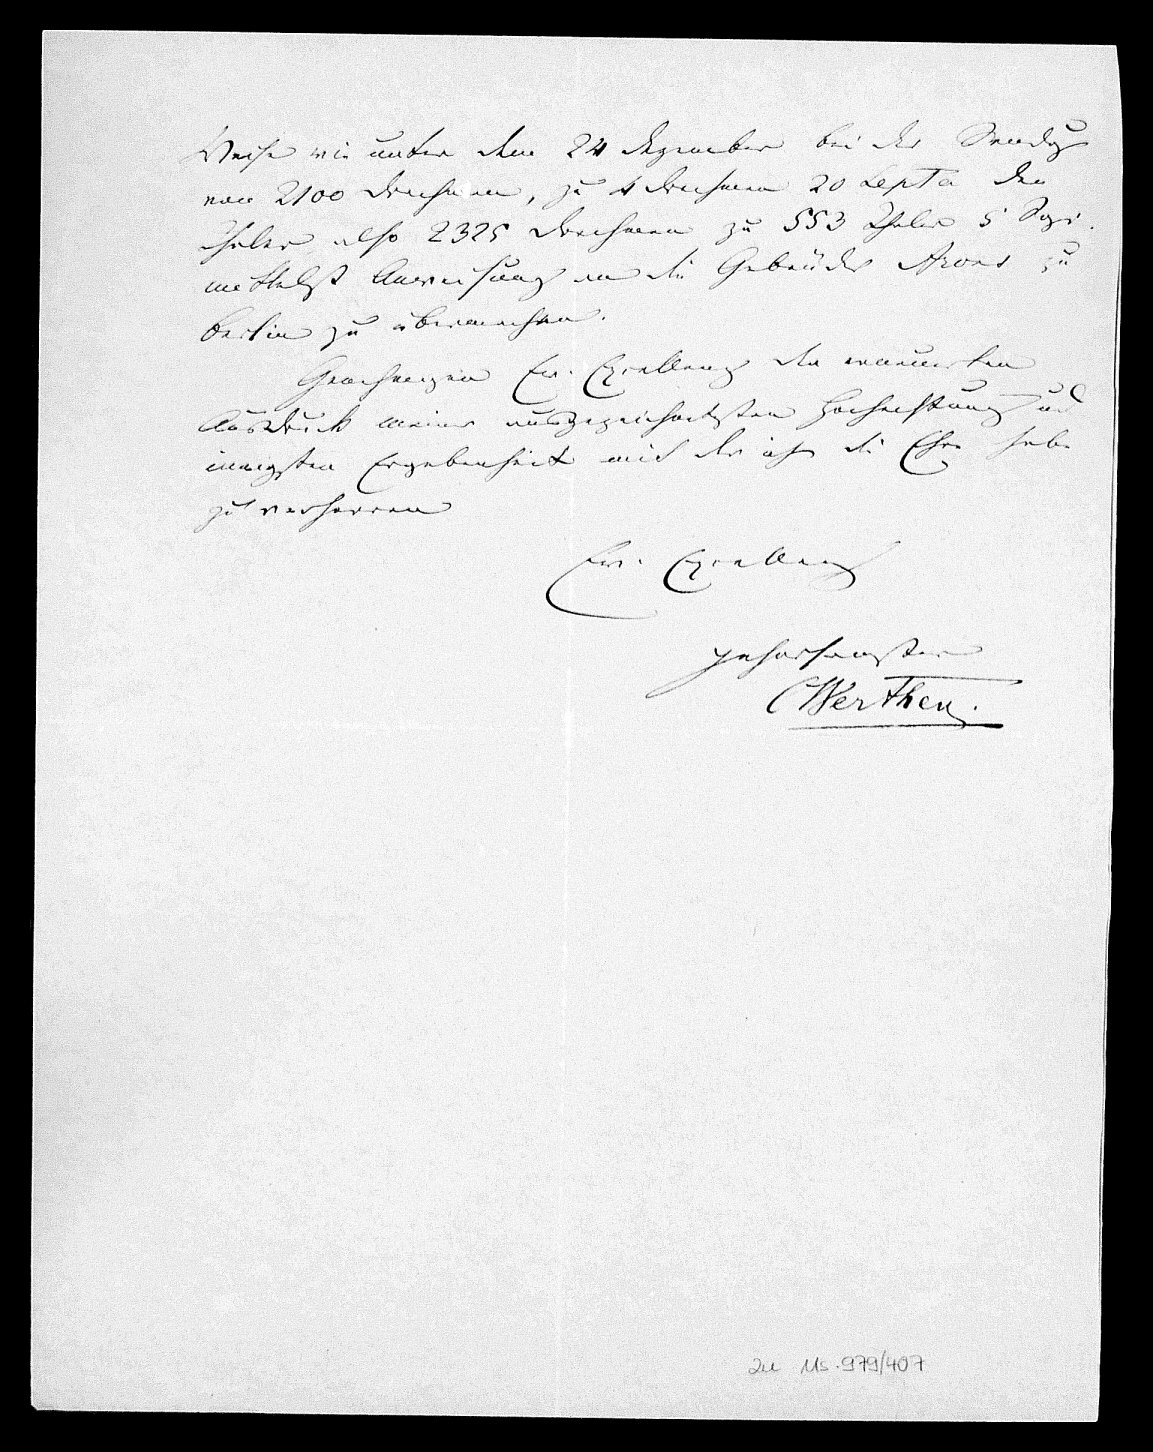 Weise wie unter dem 24 Dezember bei der Sendung
von 2100 Drachmen, zu 4 Drachmen 20 Lepta den
Thaler also 2325 Drachmen zu 553 Thaler 5 Sgr.
mittelst Anweisung an die Gebrüder Arons zu
Berlin zu übermachen.
Genehmigen Ew. Excellenz den erneuerten
Ausdruck meiner ausgezeichnetsten Hochachtung und
innigsten Ergebenheit mit der ich die Ehre habe
zu verharren
Ew. Excellenz
gehorsamster
CWerthern.
zu Ms. 979/407